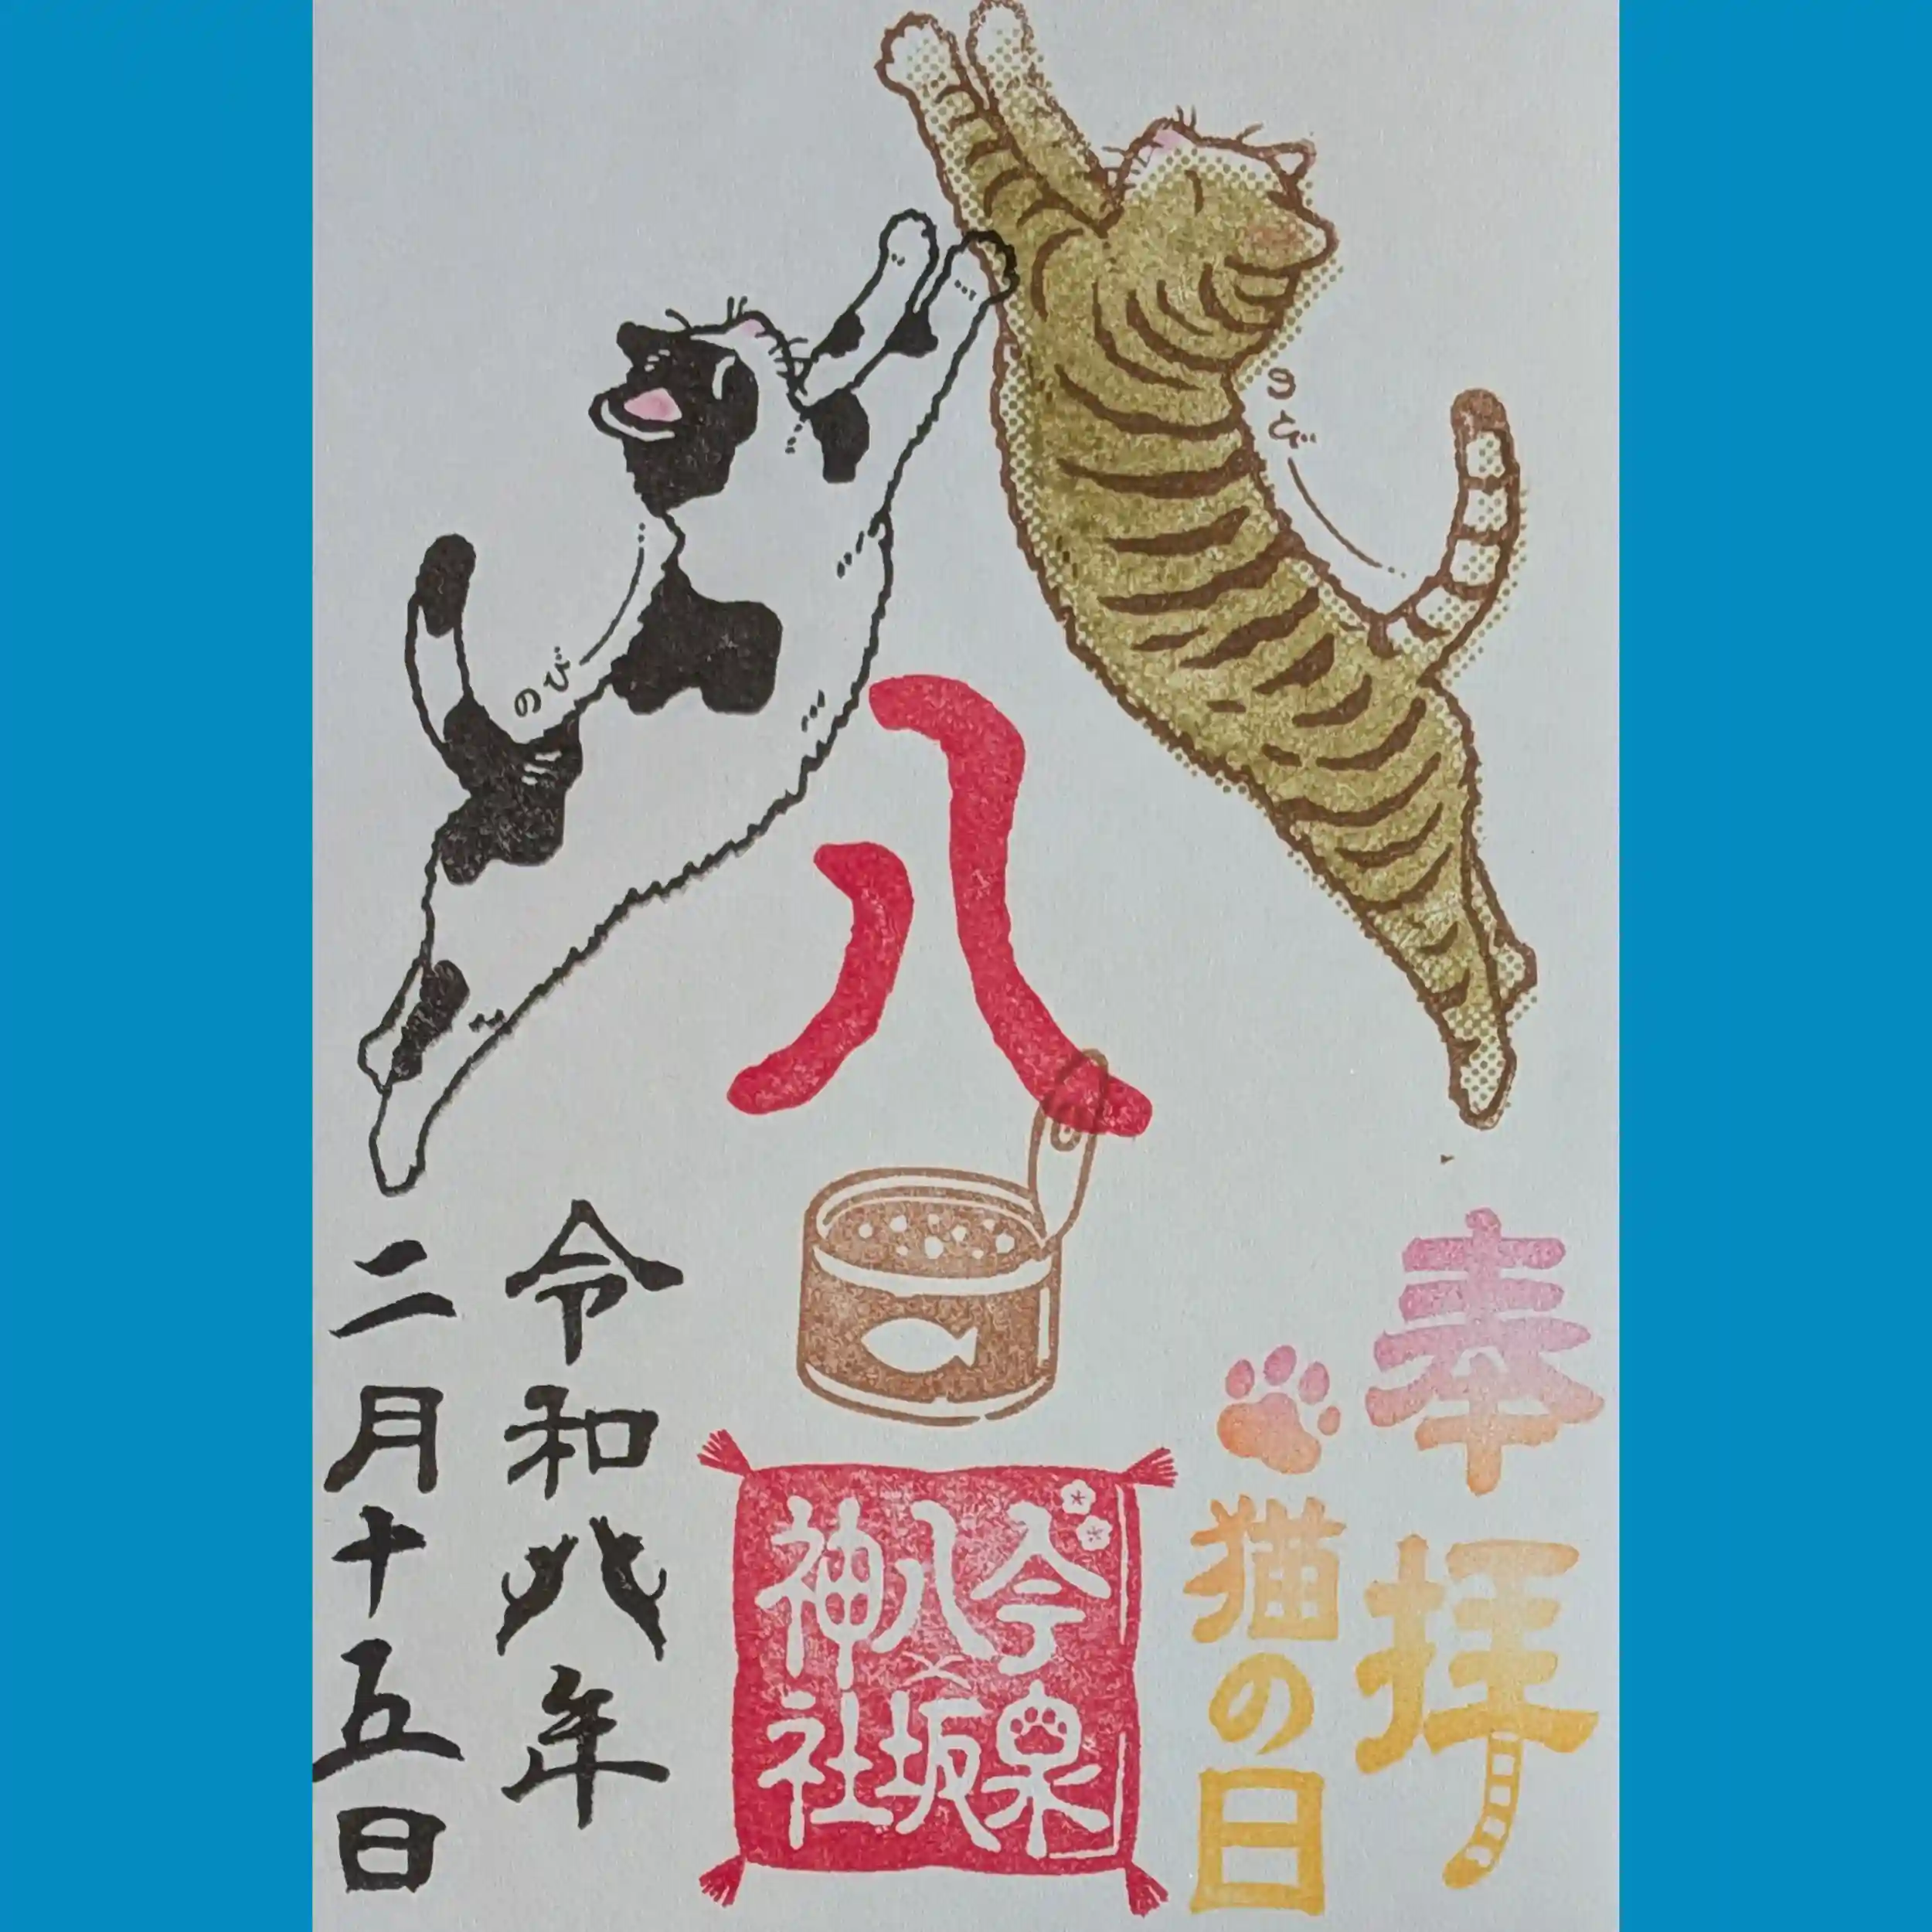 のび
のび
奉拝
猫の日
八
今泉
八坂
神社
令和八年
二月十五日